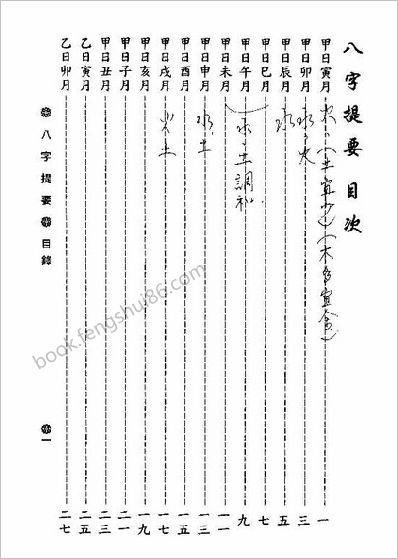 八字提要目次
甲日寅月 火、(土宜少)(木多宜金) 一
甲日卯月 水、火 三
甲日辰月 水 五
甲日巳月 七
甲日午月 水、土調和 九
甲日未月 一一
甲日申月 水土 一三
甲日酉月 一五
甲日戌月 火土 一七
甲日亥月 一九
甲日子月 二一
甲日丑月 二三
乙日寅月 二五
乙日卯月 二七
八字提要 目錄 一
book.fengshui86.com